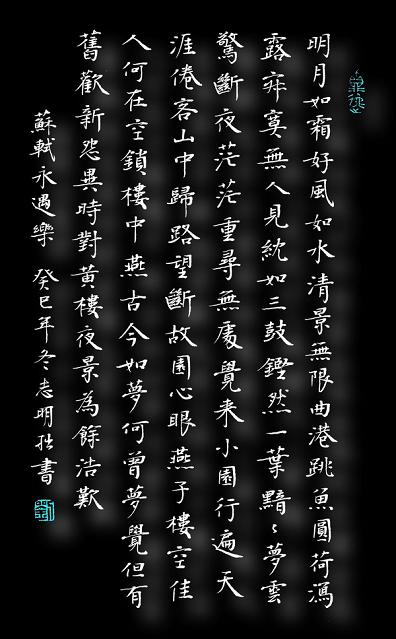 明月如霜好風如水清景無限曲港跳魚圓荷瀉
露寂寞無人見紞如三鼓鏗然一葉黯〻夢雲
驚斷夜茫茫重尋無處覺来小園行遍天
涯倦客山中歸路望斷故園心眼燕子樓空佳
人何在空鎖樓中燕古今如夢何曾夢覺但有
舊歡新怨異時對黃樓夜景為餘浩歎
蘇軾永遇樂 癸巳年冬志明拙書